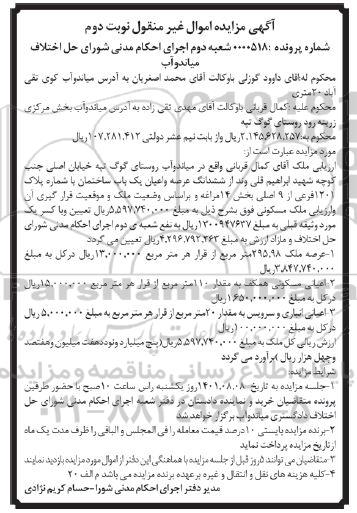 آگهی مزایده اموال غیر منقول نوبت دوم
شماره پرونده :۰۰۰۰۵۱۸ شعبه دوم اجرای احکام مدنی شورای حل اختلاف
میاندوآب
محکوم له:آقای داوود گوزلی باوکالت آقای محمد اصغریان به آدرس میاندوآب کوی تقی
آباد ۲۰متری
محکوم علیه :کمال قربانی باوکالت آقای مهدی تقی زاده به آدرس میاندوآب بخش مرکزی
زرینه رود روستای گوگ تپه
محکوم به:۲.۱۴۵,۶۲۸.۲۵۷ریال واز بابت نیم عشر دولتی ۱۰۷,۲۸۱,۴۱۲ریال
مورد مزایده عبارت است از:
ارزیابی ملک آقای کمال قربانی واقع در میاندوآب روستای گوگ تپه خیابان اصلی جنب
کوچه شهید ابراهیم قلی وند از ششدانگ عرصه واعیان یک باب ساختمان با شماره پلاک
۱۲۰۱فرعی از ۹ اصلی بخش ۱۴مراغه و براساس وضعیت ملک و موقعیت قرار گیری آن
وارزیابی ملک مسکونی فوق بشرح ذیل به مبلغ ۵,۵۹۷,۷۴۰,۰۰۰ریال تعیین وبا کسر یک
مورد وثیقه قبلی به مبلغ ۱۳۰۰۹۴۷۶۳۷ریال به نفع شعبه ی دوم اجرای احکام مدنی شورای
حل اختلاف و مازاد ارزش به مبلغ ۴,۲۹۶,۷۹۲,۳۶۳ریال تعیین می گردد
۱-عرصه ملک ۲۹۵,۹۸متر مربع از قرار هر متر مربع ۱۳,۰۰۰,۰۰۰ریال درکل به مبلغ
۳,۸۴۷,۷۴۰,۰۰۰ریال
۲-اعیانی مسکونی همکف به مقدار ۱۱۰متر مربع از قرار هر متر مربع ۱۵,۰۰۰,۰۰۰ریال
درکل به مبلغ ۱۶۵۰,۰۰۰,۰۰۰ریال
۳-اعیانی انباری و سرویس به مقدار ۲۰متر مربع از قرار هر متر مربع به مبلغ ۵,۰۰۰,۰۰۰ ریال
درکل به مبلغ ۱۰۰,۰۰۰,۰۰۰ریال
ارزش ریالی کل ملک به مبلغ ۵,۵۹۷,۷۴۰,۰۰۰ریال(پنج میلیارد ونودوهفت میلیون وهفتصد
وچهل هزار ریال )برآورد می گردد
شرایط مزایده:
۱-جلسه مزایده به تاریخ ۱۴۰۱,۰۸,۰۸روز یکشنبه راس ساعت ۱۰صبح با حضور طرفین
پرونده متقاضیان خرید و نماینده دادستان در دفتر شعبه اجرای احکام مدنی شورای حل
اختلاف دادگستری میاندوآب برگزار خواهد شد
۲-برنده مزایده بایستی ۱۰درصد قیمت معامله را فی المجلس و الباقی را ظرف مدت یک ماه
از تاریخ مزایده پرداخت نماید
۳-متقاضیان می توانند ۵روز قبل از جلسه مزایده با هماهنگی این دفتر از اموال مورد مزایده بازدید نمایند
۴-کلیه هزینه های نقل و انتقال و غیره برعهده برنده مزایده می باشد م الف ۲۰
مدیر دفتر اجرای احکام مدنی شورا-حسام کریم نژادی